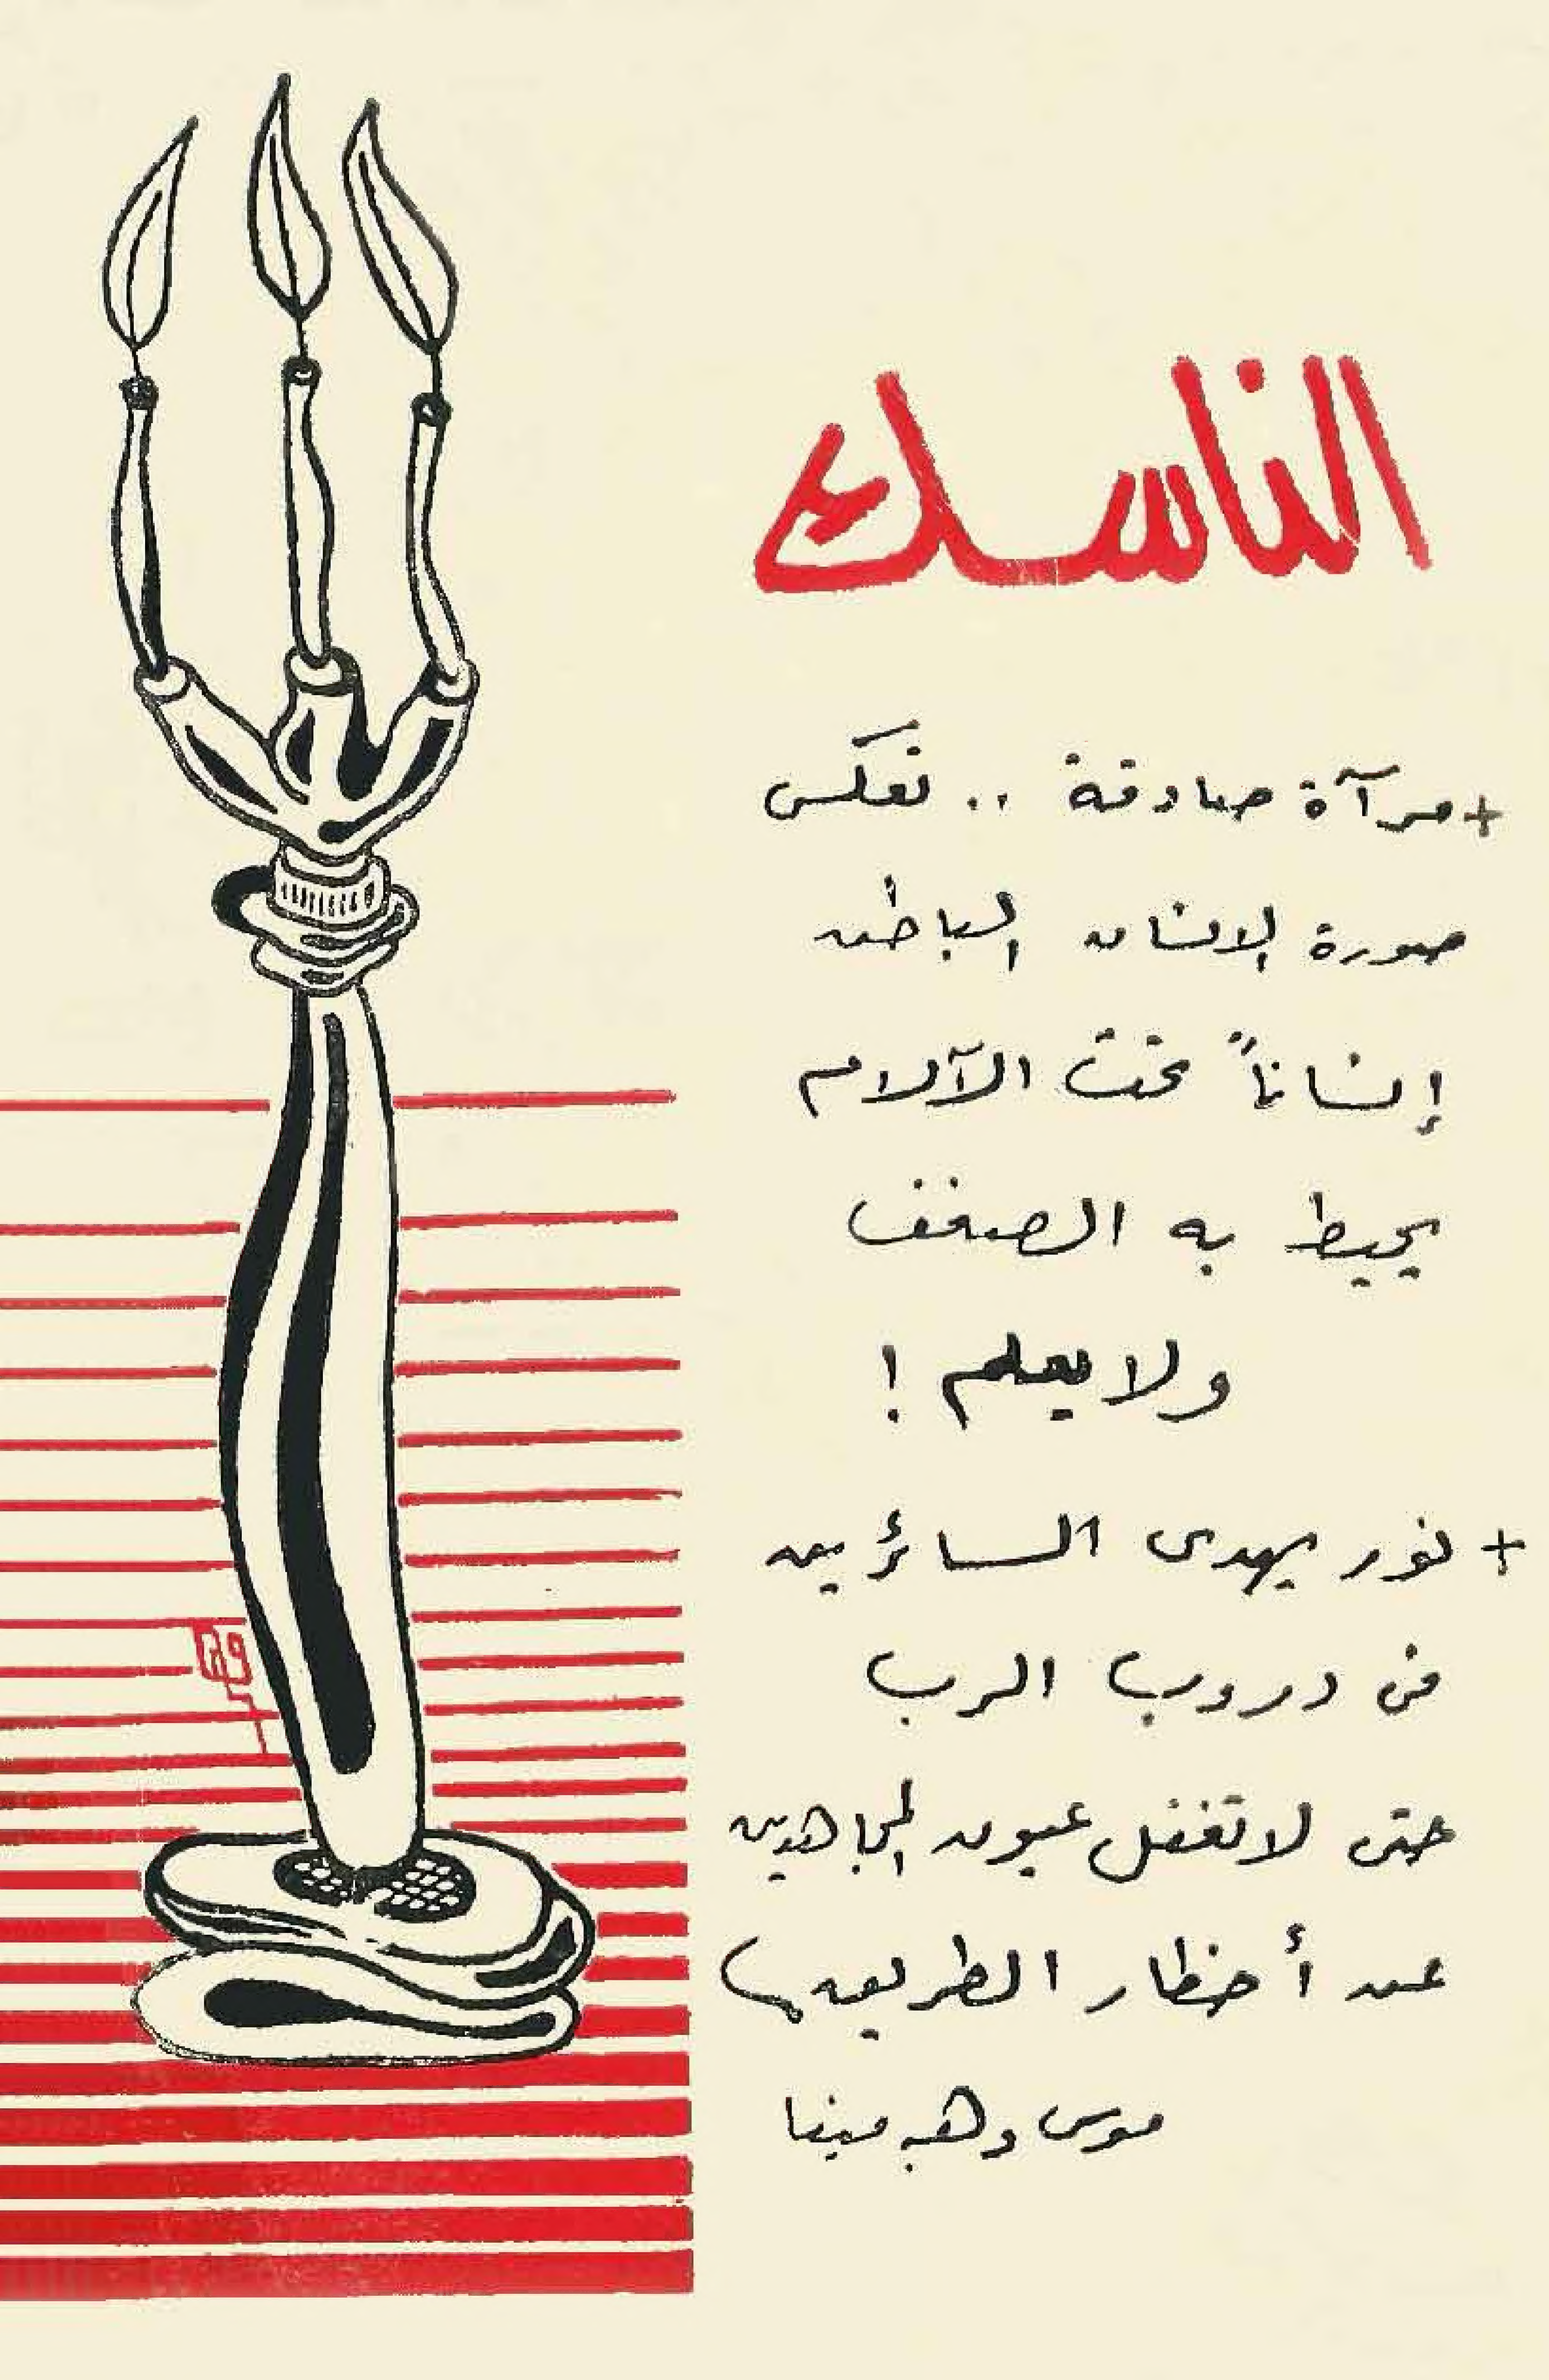 الناسك
+ مرآة صادقة .. تعكس
صورة الانسان الباطن
إنساناً تحت الآلام
يحيط به الضعف
ولا يعلم !
+ نور يهدى السائرين
فى دروب الرب
حتى لا تغفل عيون المجاهدين
عن أخطار الطريق
موسى وهبه مينا